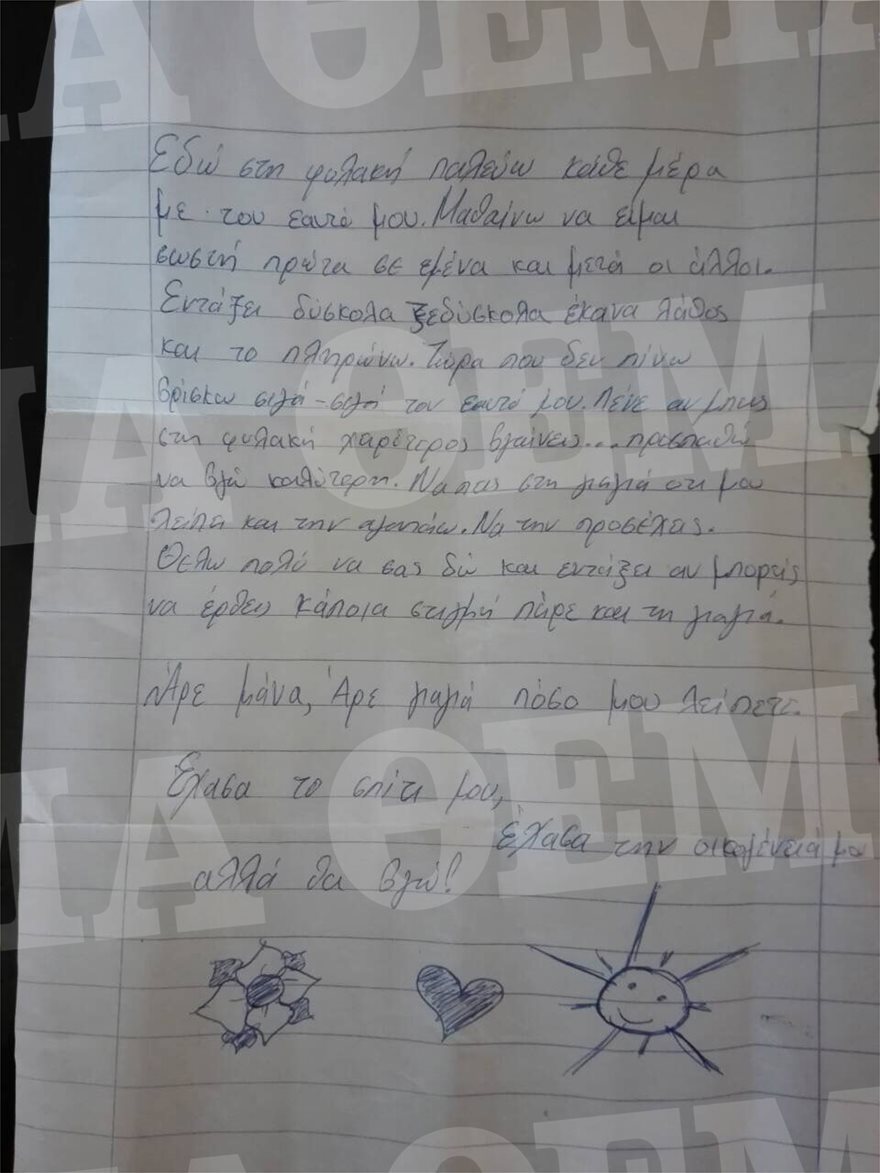 ΘΕΜΑ
Εδώ στη φυλακή παλεύω κάθε μέρα
με του εαυτό μου. Μαθαίνω να είμαι
σωστή πρώτα σε εμένα και μετά οι άλλοι.
Εντάξει δύσκολα ξεδύσκολα έκανα λάθος
και το πληρώνω. Τώρα που δεν πίνω
βρίσκω σιγά-σιγά τον εαυτό μου. Λένε αν μπεις
στη φυλακή χειρότερος βγαίνεις... προσπαθώ
να βγω καλύτερη. Να πεις στη γιαγιά οτι μου
λείπει και την αγαπάω. Να την προσέχεις.
Θέλω πολύ να σας δω και εντάξει αν μπορείς
να έρθεις κάποια στιγμή πάρε και τη γιαγιά.
Άρε μάνα, Άρε γιαγιά πόσο μου λείπετε.
Έχασα το σπίτι μου,
έχασα την οικογένειά μου
αλλά θα βγω!